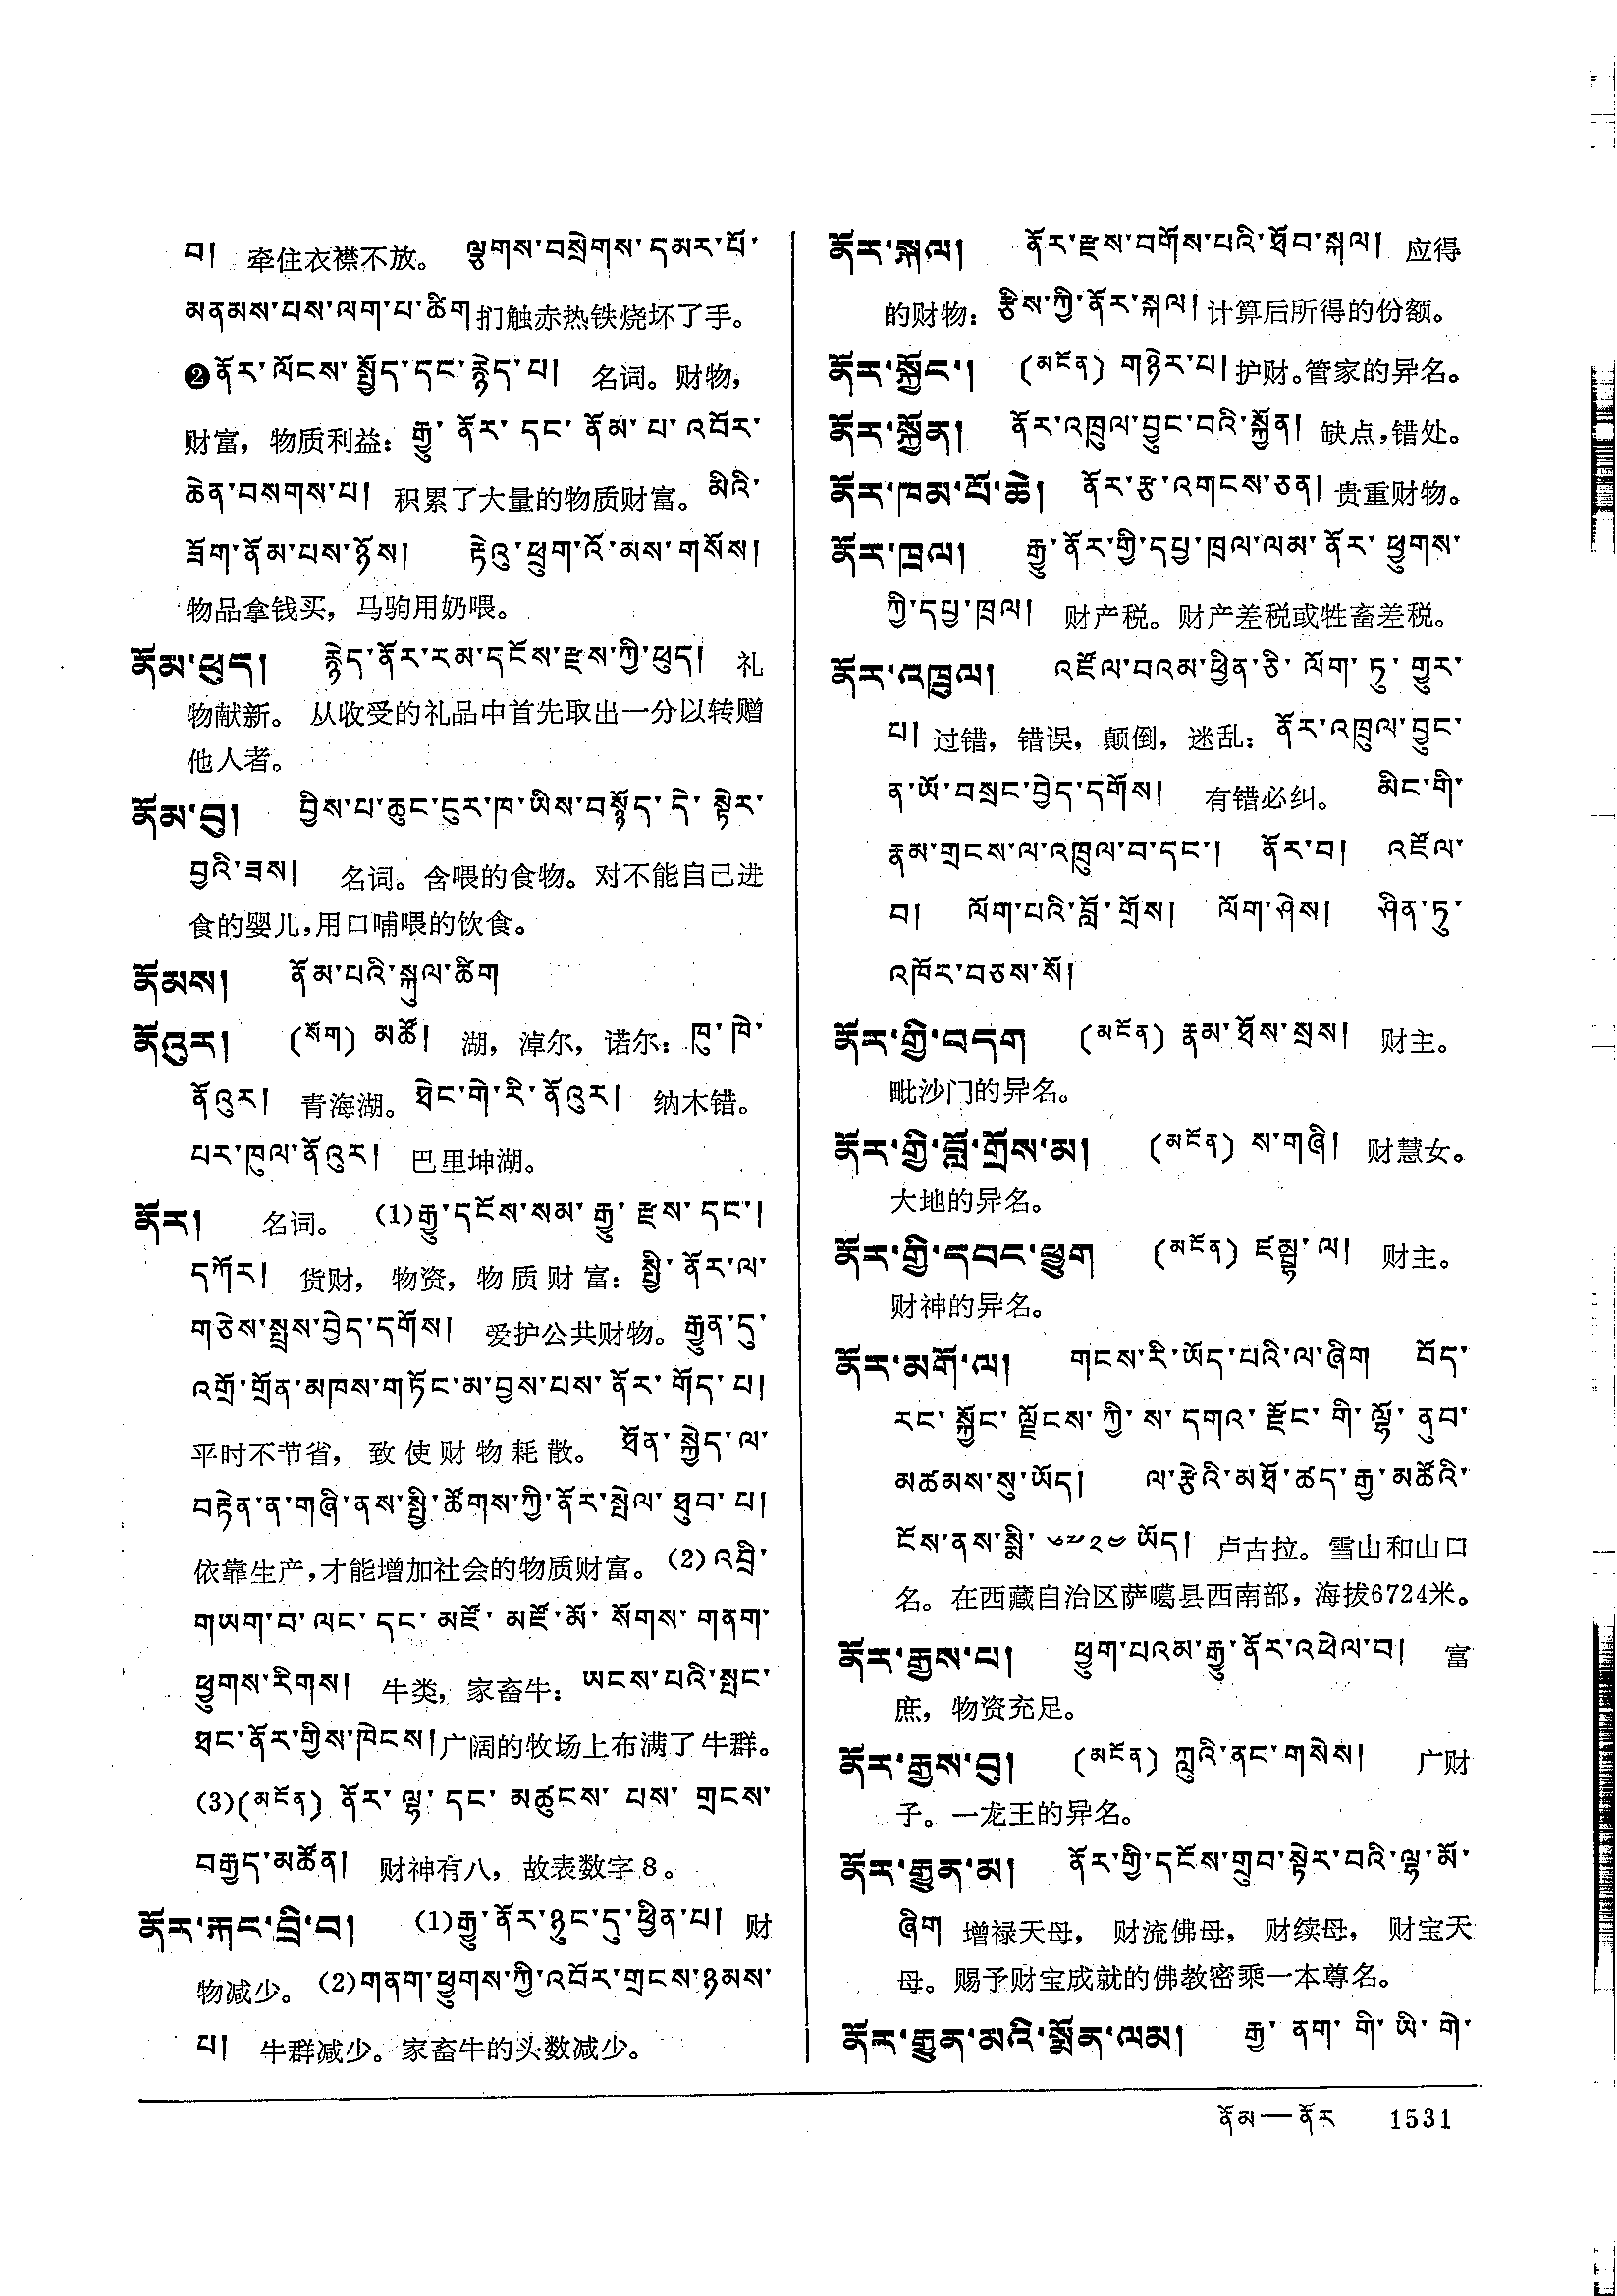 བ། 牵住衣襟不放。 ལྕགས་བསྲེགས་དམར་པོ་
མནམས་པས་ལག་པ་ཚིག 扪触赤热铁烧坏了手。
❷ནོར་ལོངས་སྤྱོད་དང་རྙེད་པ། 名词。财物，
财富，物质利益：རྒྱུ་ནོར་དང་ནོམ་པ་འབོར་
ཆེན་བསགས་པ། 积累了大量的物质财富。མིའི་
ཟོག་ནོམ་པས་ཉོས། རྟེའུ་ཕྲུག་འོ་མས་གསོས།
物品拿钱买，马驹用奶喂。
ནོམ་ཕུད། རྙེད་ནོར་རམ་དངོས་རྫས་ཀྱི་ཕུད། 礼
物献新。 从收受的礼品中首先取出一分以转赠
他人者。
ནོམ་བུ། བྱིས་པ་ཆུང་ངུར་ཁ་ཡིས་བསྙོད་དེ་སྟེར་
བྱའི་ཟས། 名词。含喂的食物。对不能自己进
食的婴儿，用口哺喂的饮食。
ནོམས། ནོམ་པའི་སྐུལ་ཚིག
ནོའུར། (སོག) མཚོ། 湖，淖尔，诺尔：ཁུ་ཁེ་
ནོའུར། 青海湖。ཐེང་གེ་རི་ནོའུར། 纳木错。
པར་ཁུལ་ནོའུར། 巴里坤湖。
ནོར། 名词。 (1)རྒྱུ་དངོས་སམ་རྒྱུ་རྫས་དང་།
དཀོར། 货财，物资，物质财富：སྤྱི་ནོར་ལ་
གཅེས་སྤྲས་བྱེད་དགོས། 爱护公共财物。རྒྱུན་དུ་
འགྲོ་གྲོན་མཁས་གཏོང་མ་བྱས་པས་ནོར་གོད་པ།
平时不节省，致使财物耗散。ཐོན་སྐྱེད་ལ་
བརྟེན་ན་གཞི་ནས་སྤྱི་ཚོགས་ཀྱི་ནོར་སྤེལ་ཐུབ་པ།
依靠生产，才能增加社会的物质财富。(2)འབྲི་
གཡག་བ་ལང་དང་མཛོ་མཛོ་མོ་སོགས་གནག་
ཕྱུགས་རིགས། 牛类，家畜牛：ཡངས་པའི་སྤང་
ཐང་ནོར་གྱིས་ཁེངས། 广阔的牧场上布满了牛群。
(3)(མངོན) ནོར་ལྷ་དང་མཚུངས་པས་གྲངས་
བརྒྱད་མཚོན། 财神有八，故表数字8。
ནོར་རྐང་བྲི་བ། (1)རྒྱུ་ནོར་ཉུང་དུ་ཕྱིན་པ། 财
物减少。(2)གནག་ཕྱུགས་ཀྱི་འབོར་གྲངས་ཉམས་
པ། 牛群减少。家畜牛的头数减少。
ནོར་སྐལ། ནོར་རྫས་བགོས་པའི་ཐོབ་སྐལ། 应得
的财物：རྩིས་ཀྱི་ནོར་སྐལ། 计算后所得的份额。
ནོར་སྐྱོང་། (མངོན) གཉེར་པ། 护财。管家的异名。
ནོར་སྐྱོན། ནོར་འཁྲུལ་བྱུང་བའི་སྐྱོན། 缺点，错处。
ནོར་ཁམ་པོ་ཆེ། ནོར་རྩ་འགངས་ཅན། 贵重财物。
ནོར་ཁྲལ། རྒྱུ་ནོར་གྱི་དཔྱ་ཁྲལ་ལམ་ནོར་ཕྱུགས་
ཀྱི་དཔྱ་ཁྲལ། 财产税。财产差税或牲畜差税。
ནོར་འཁྲུལ། འཛོལ་བའམ་ཕྱིན་ཅི་ལོག་ཏུ་གྱུར་
པ། 过错，错误，颠倒，迷乱：ནོར་འཁྲུལ་བྱུང་
ན་ཡོ་བསྲང་བྱེད་དགོས། 有错必纠。 མིང་གི་
རྣམ་གྲངས་ལ་འཁྲུལ་བ་དང་། ནོར་བ། འཛོལ་
བ། ལོག་པའི་བློ་གྲོས། ལོག་ཤེས། ཤིན་ཏུ་
འཁོར་བཅས་སོ།
ནོར་གྱི་བདག (མངོན) རྣམ་ཐོས་སྲས། 财主。
毗沙门的异名。
ནོར་གྱི་བློ་གྲོས་མ། (མངོན) ས་གཞི། 财慧女。
大地的异名。
ནོར་གྱི་དབང་ཕྱུག (མངོན) ཛམྦྷ་ལ། 财主。
财神的异名。
ནོར་མགོ་ལ། གངས་རི་ཡོད་པའི་ལ་ཞིག བོད་
རང་སྐྱོང་ལྗོངས་ཀྱི་ས་དགའ་རྫོང་གི་ལྷོ་ནུབ་
མཚམས་སུ་ཡོད། ལ་རྩེའི་མཐོ་ཚད་རྒྱ་མཚོའི་
ངོས་ནས་སྨི་༦༧༢༤ ཡོད། 卢古拉。雪山和山口
名。在西藏自治区萨噶县西南部，海拔6724米。
ནོར་རྒྱས་པ། ཕྱུག་པའམ་རྒྱུ་ནོར་འཕེལ་བ། 富
庶，物资充足。
ནོར་རྒྱས་བུ། (མངོན) ཀླུའི་ནང་གསེས། 广财
子。一龙王的异名。
ནོར་རྒྱུན་མ། ནོར་གྱི་དངོས་གྲུབ་སྟེར་བའི་ལྷ་མོ་
ཞིག 增禄天母， 财流佛母， 财续母， 财宝天
母。赐予财宝成就的佛教密乘一本尊名。
ནོར་རྒྱུན་མའི་སྨོན་ལམ། རྒྱ་ནག་གི་ཡི་གེ་
ནོམ—ནོར 1531